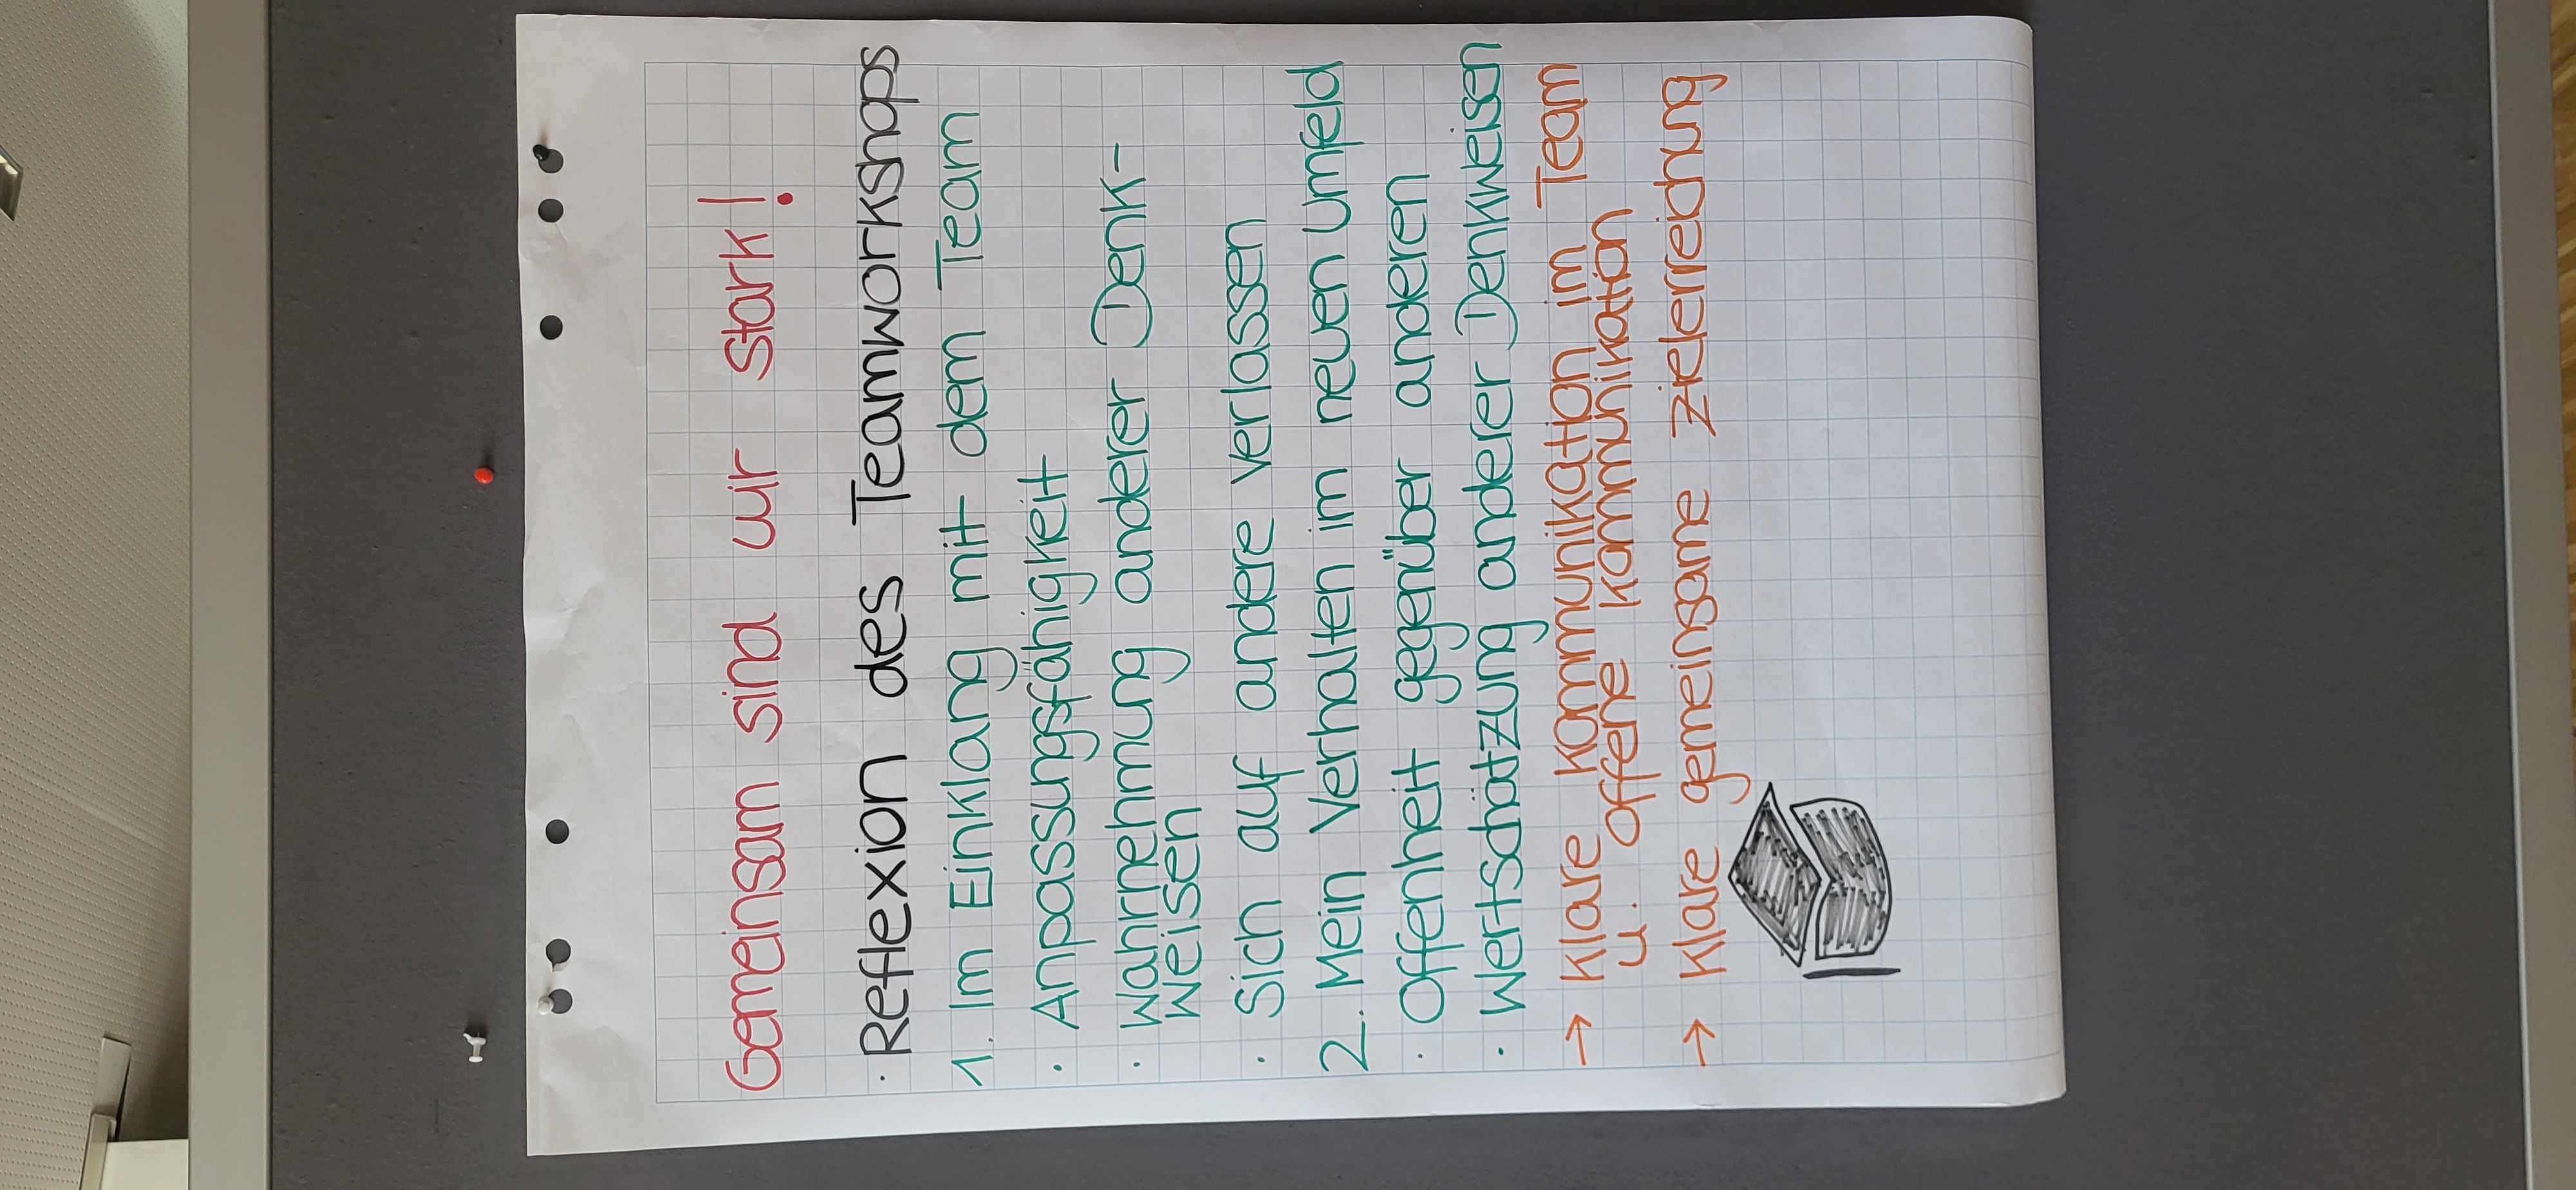 Gemeinsam sind wir stark!
· Reflexion des Teamworkshops
1. Im Einklang mit dem Team
· Anpassungsfähigkeit
· Wahrnehmung anderer Denk-
weisen
· Sich auf andere verlassen
2. Mein Verhalten im neuen Umfeld
· Offenheit gegenüber anderen
· Wertschätzung anderer Denkweisen
→ Klare Kommunikation im Team
u. offene Kommunikation
→ Klare gemeinsame Zielerreichung